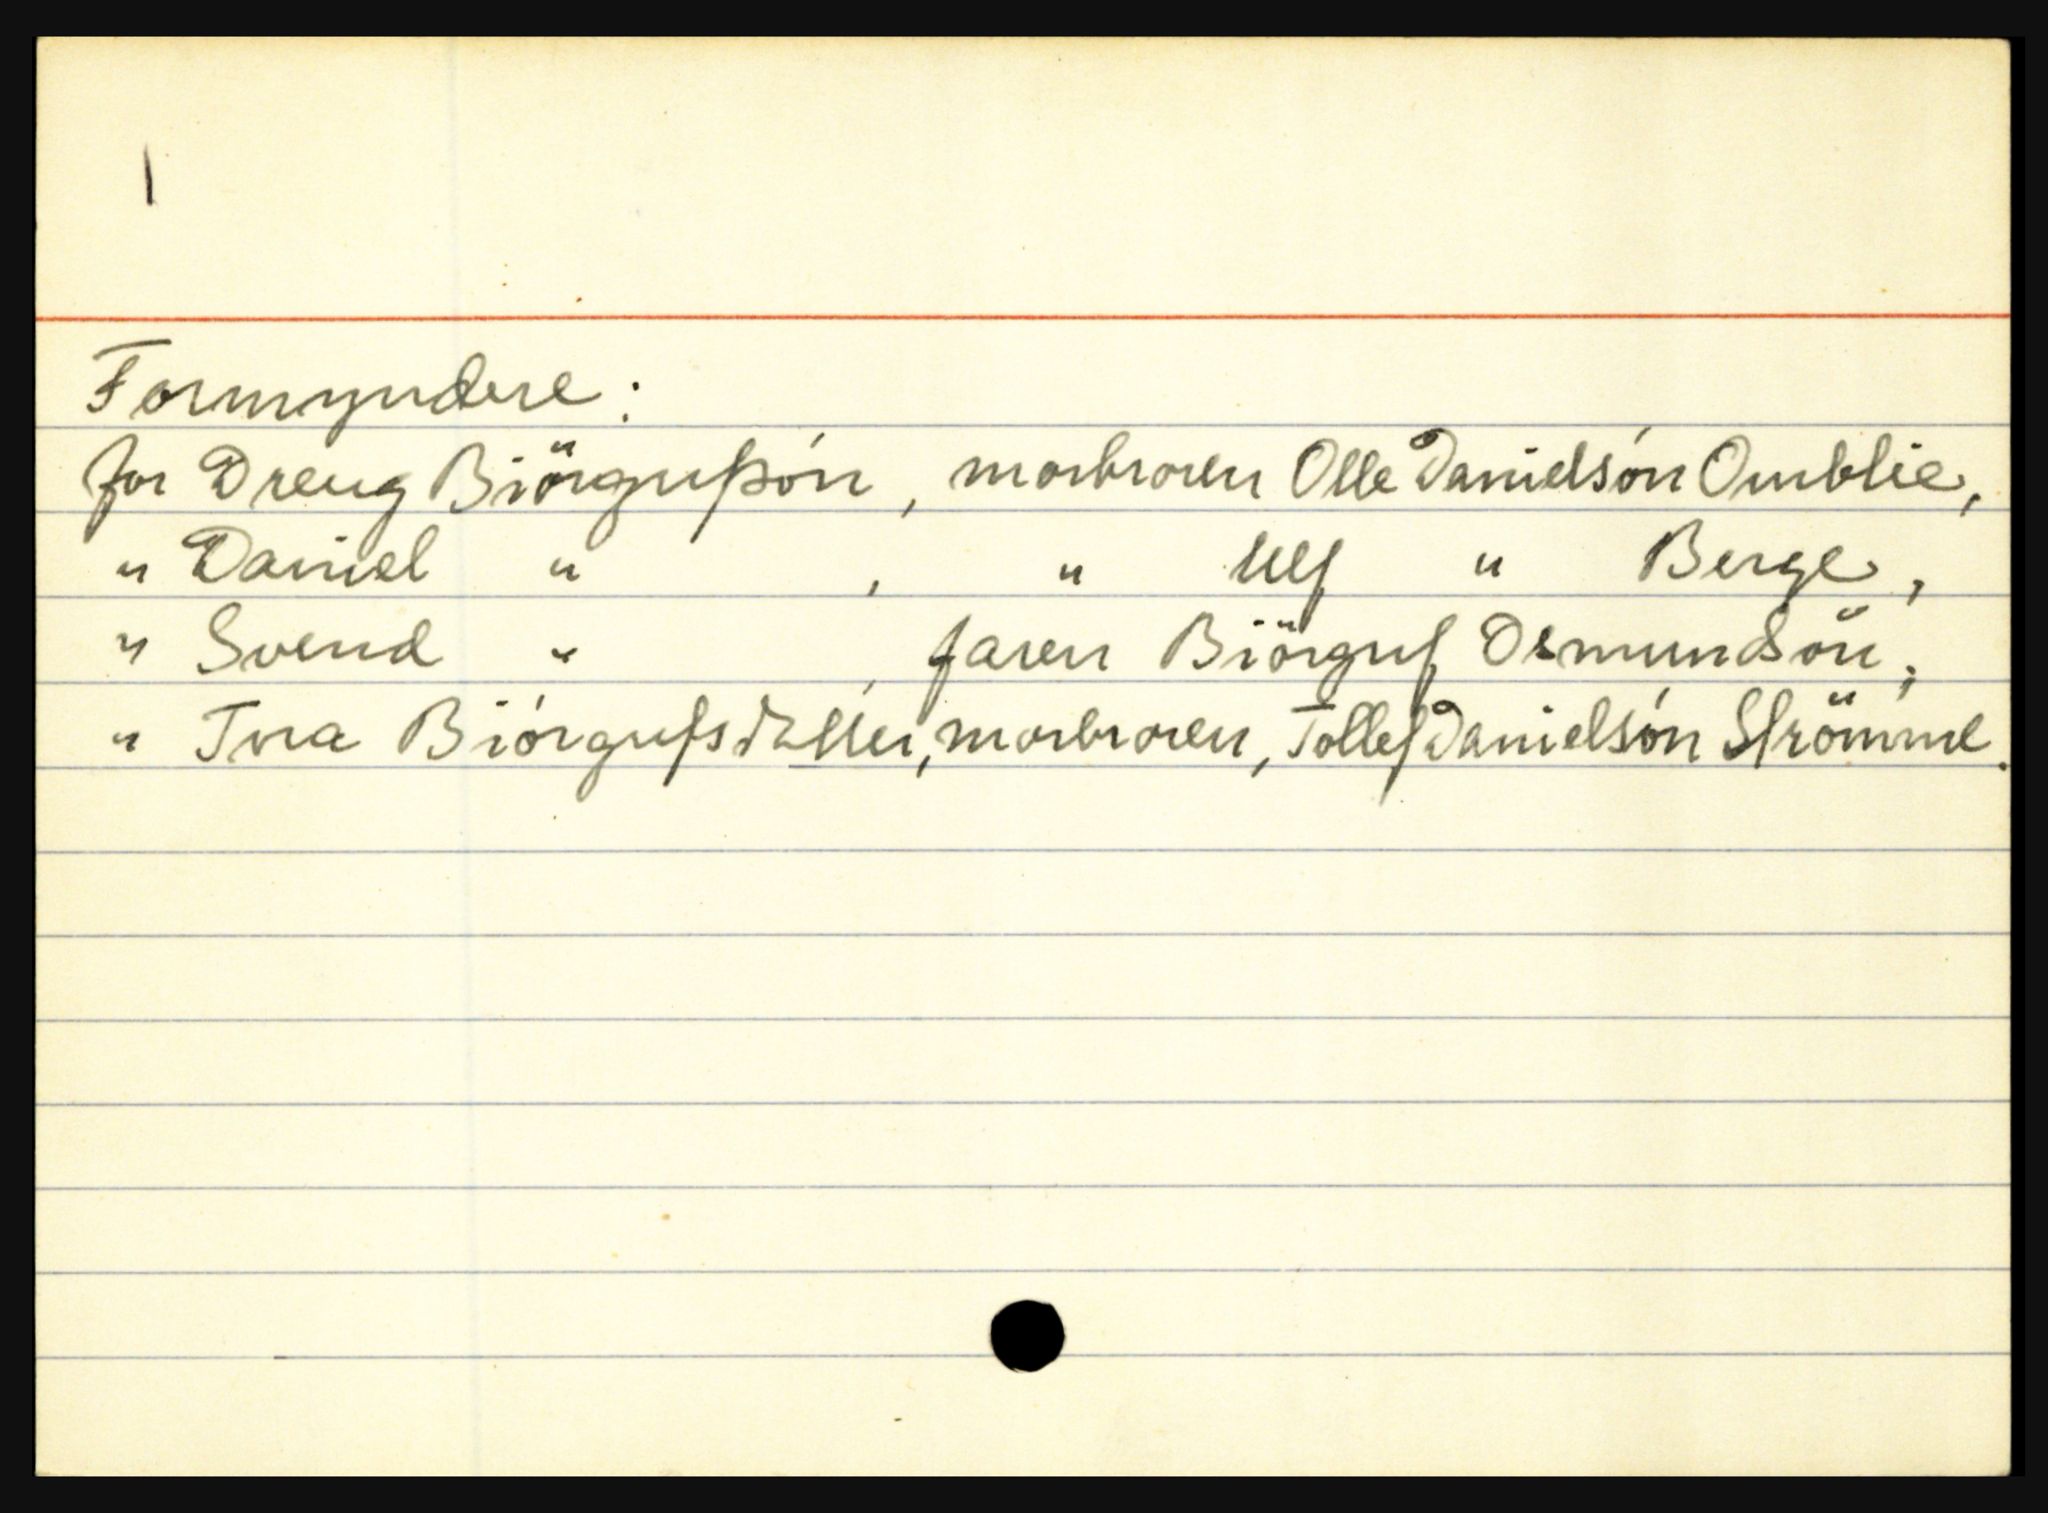 Formyndere:
for Dreng Biörgufßón, morbroren Olle Danielsón Omblie,
" Daniel " , " Ulf " Berge,
" Svend " , faren Biörguf Osmundsön;
" Tora Biórgufsdatter, morbroren, Tollef Danielsón Strömme.